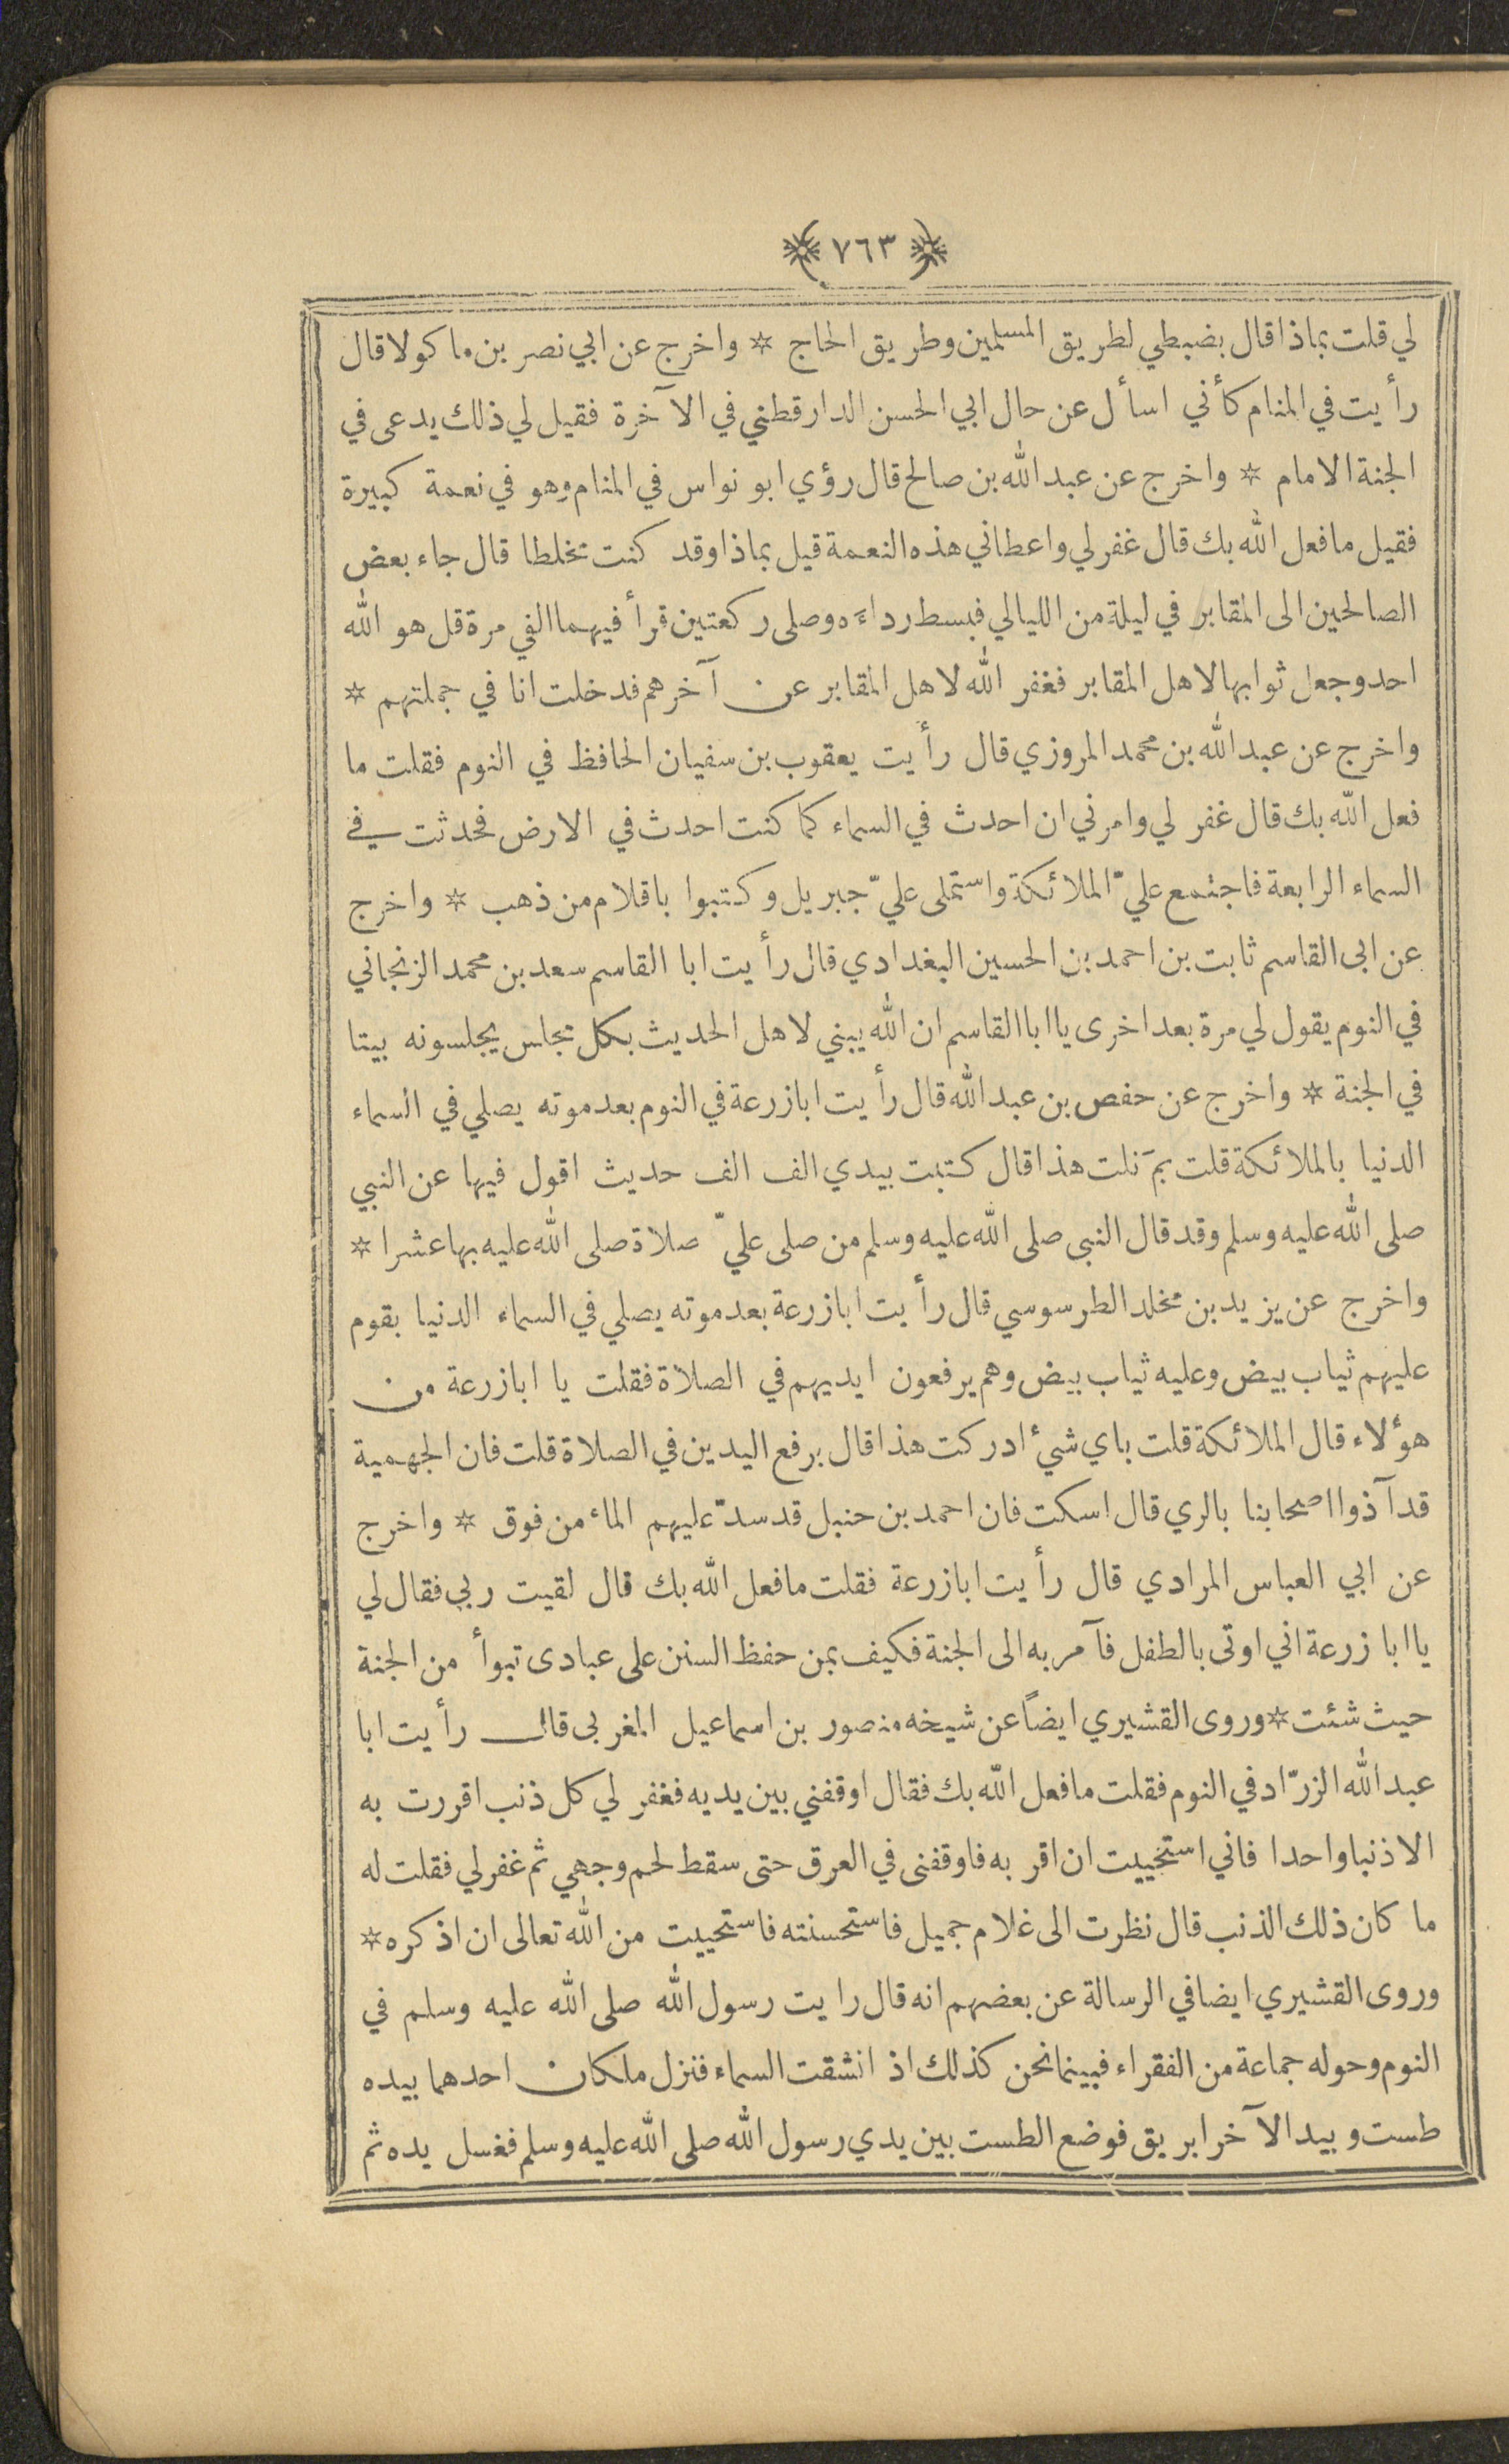 ﴿ ٧٦٣ ﴾
لي قلت بماذا قال بضبطي لطريق المسلمين وطريق الحاج * واخرج عن ابي نصر بن ماكولا قال
رأيت في المنام كأني اسأل عن حال ابي الحسن الدارقطني في الآخرة فقيل لي ذلك يدعى في
الجنة الامام * واخرج عن عبد الله بن صالح قال رؤي ابو نواس في المنام وهو في نعمة كبيرة
فقيل ما فعل الله بك قال غفر لي واعطاني هذه النعمة قيل بماذا وقد كنت مخلطا قال جاء بعض
الصالحين الى المقابر في ليلة من الليالي فبسط رداءه وصلى ركعتين قرأ فيهما الفي مرة قل هو الله
احد وجعل ثوابها لاهل المقابر فغفر الله لاهل المقابر عن آخرهم فدخلت انا في جملتهم *
واخرج عن عبد الله بن محمد المروزي قال رأيت يعقوب بن سفيان الحافظ في النوم فقلت ما
فعل الله بك قال غفر لي وامرني ان احدث في السماء كما كنت احدث في الارض فحدثت في
السماء الرابعة فاجتمع عليّ الملائكة واستملى عليّ جبريل وكتبوا باقلام من ذهب * واخرج
عن ابى القاسم ثابت بن احمد بن الحسين البغدادي قال رأيت ابا القاسم سعد بن محمد الزنجاني
في النوم يقول لي مرة بعد اخرى يا ابا القاسم ان الله يبني لاهل الحديث بكل مجلس يجلسونه بيتا
في الجنة * واخرج عن حفص بن عبد الله قال رأيت ابا زرعة في النوم بعد موته يصلي في السماء
الدنيا بالملائكة قلت بمَ نلت هذا قال كتبت بيدي الف الف حديث اقول فيها عن النبي
صلى الله عليه وسلم وقد قال النبى صلى الله عليه وسلم من صلى عليّ صلاة صلى الله عليه بها عشرا *
واخرج عن يزيد بن مخلد الطرسوسي قال رأيت ابا زرعة بعد موته يصلي في السماء الدنيا بقوم
عليهم ثياب بيض وعليه ثياب بيض وهم يرفعون ايديهم في الصلاة فقلت يا ابا زرعة من
هؤلاء قال الملائكة قلت باي شيء ادركت هذا قال برفع اليدين في الصلاة قلت فان الجهمية
قد آذوا اصحابنا بالري قال اسكت فان احمد بن حنبل قد سدّ عليهم الماء من فوق * واخرج
عن ابي العباس المرادي قال رأيت ابا زرعة فقلت ما فعل الله بك قال لقيت ربي فقال لي
يا ابا زرعة اني اوتى بالطفل فآمر به الى الجنة فكيف بمن حفظ السنن على عبادى تبوأ من الجنة
حيث شئت * وروى القشيري ايضاً عن شيخه منصور بن اسماعيل المغربى قال رأيت ابا
عبد الله الزرّاد في النوم فقلت ما فعل الله بك فقال اوقفني بين يديه فغفر لي كل ذنب اقررت به
الا ذنبا واحدا فاني استحييت ان اقر به فاوقفنى في العرق حتى سقط لحم وجهي ثم غفر لي فقلت له
ما كان ذلك الذنب قال نظرت الى غلام جميل فاستحسنته فاستحييت من الله تعالى ان اذكره *
وروى القشيري ايضا في الرسالة عن بعضهم انه قال رايت رسول الله صلى الله عليه وسلم في
النوم وحوله جماعة من الفقراء فبينما نحن كذلك اذ انشقت السماء فنزل ملكان احدهما بيده
طست وبيد الآخر ابريق فوضع الطست بين يدي رسول الله صلى الله عليه وسلم فغسل يده ثم